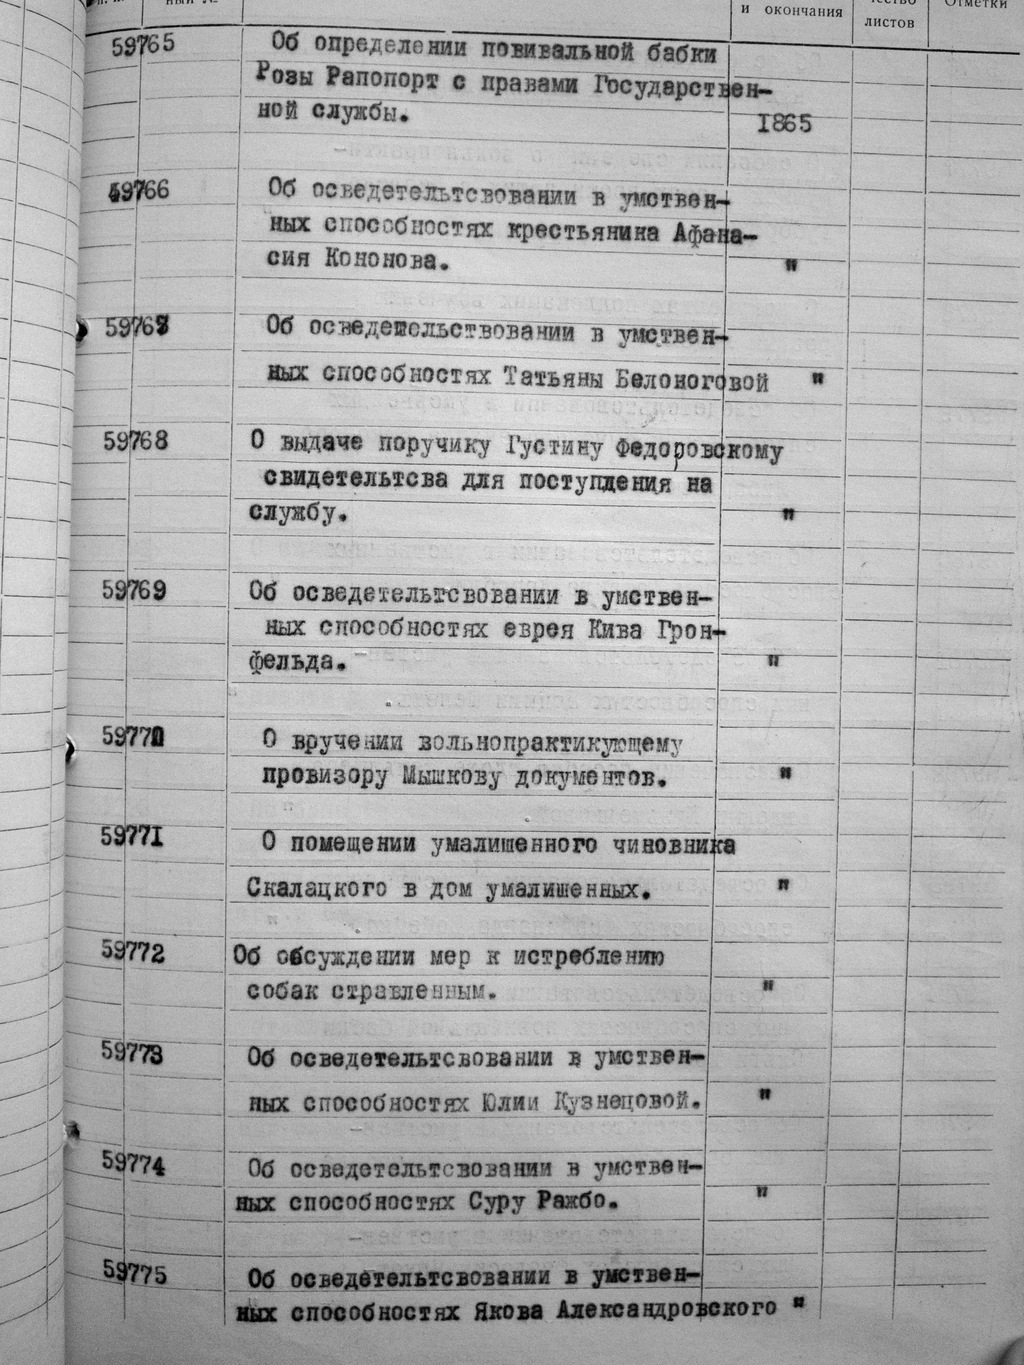 ный №
и окончания
листов
Отметки
59765 Об определении повивальной бабки
Розы Рапопорт с правами Государствен-
ной службы.
1865
49766 Об осведетельтсвовании в умствен-
ных способностях крестьянина Афана-
сия Кононова. "
59767 Об осведетельствовании в умствен-
ных способностях Татьяны Белоноговой "
59768 О выдаче поручику Густину Федоровскому
свидетельтсва для поступления на
службу. "
59769 Об осведетельтсвовании в умствен-
ных способностях еврея Кива Грон-
фельда. "
59770 О вручении вольнопрактикующему
провизору Мышкову документов. "
59771 О помещении умалишенного чиновника
Скалацкого в дом умалишенных. "
59772 Об обсуждении мер к истреблению
собак стравленным. "
59773 Об осведетельтсвовании в умствен-
ных способностях Юлии Кузнецовой. "
59774 Об осведетельтсвовании в умствен-
ных способностях Суру Ражбо. "
59775 Об осведетельтсвовании в умствен-
ных способностях Якова Александровского "